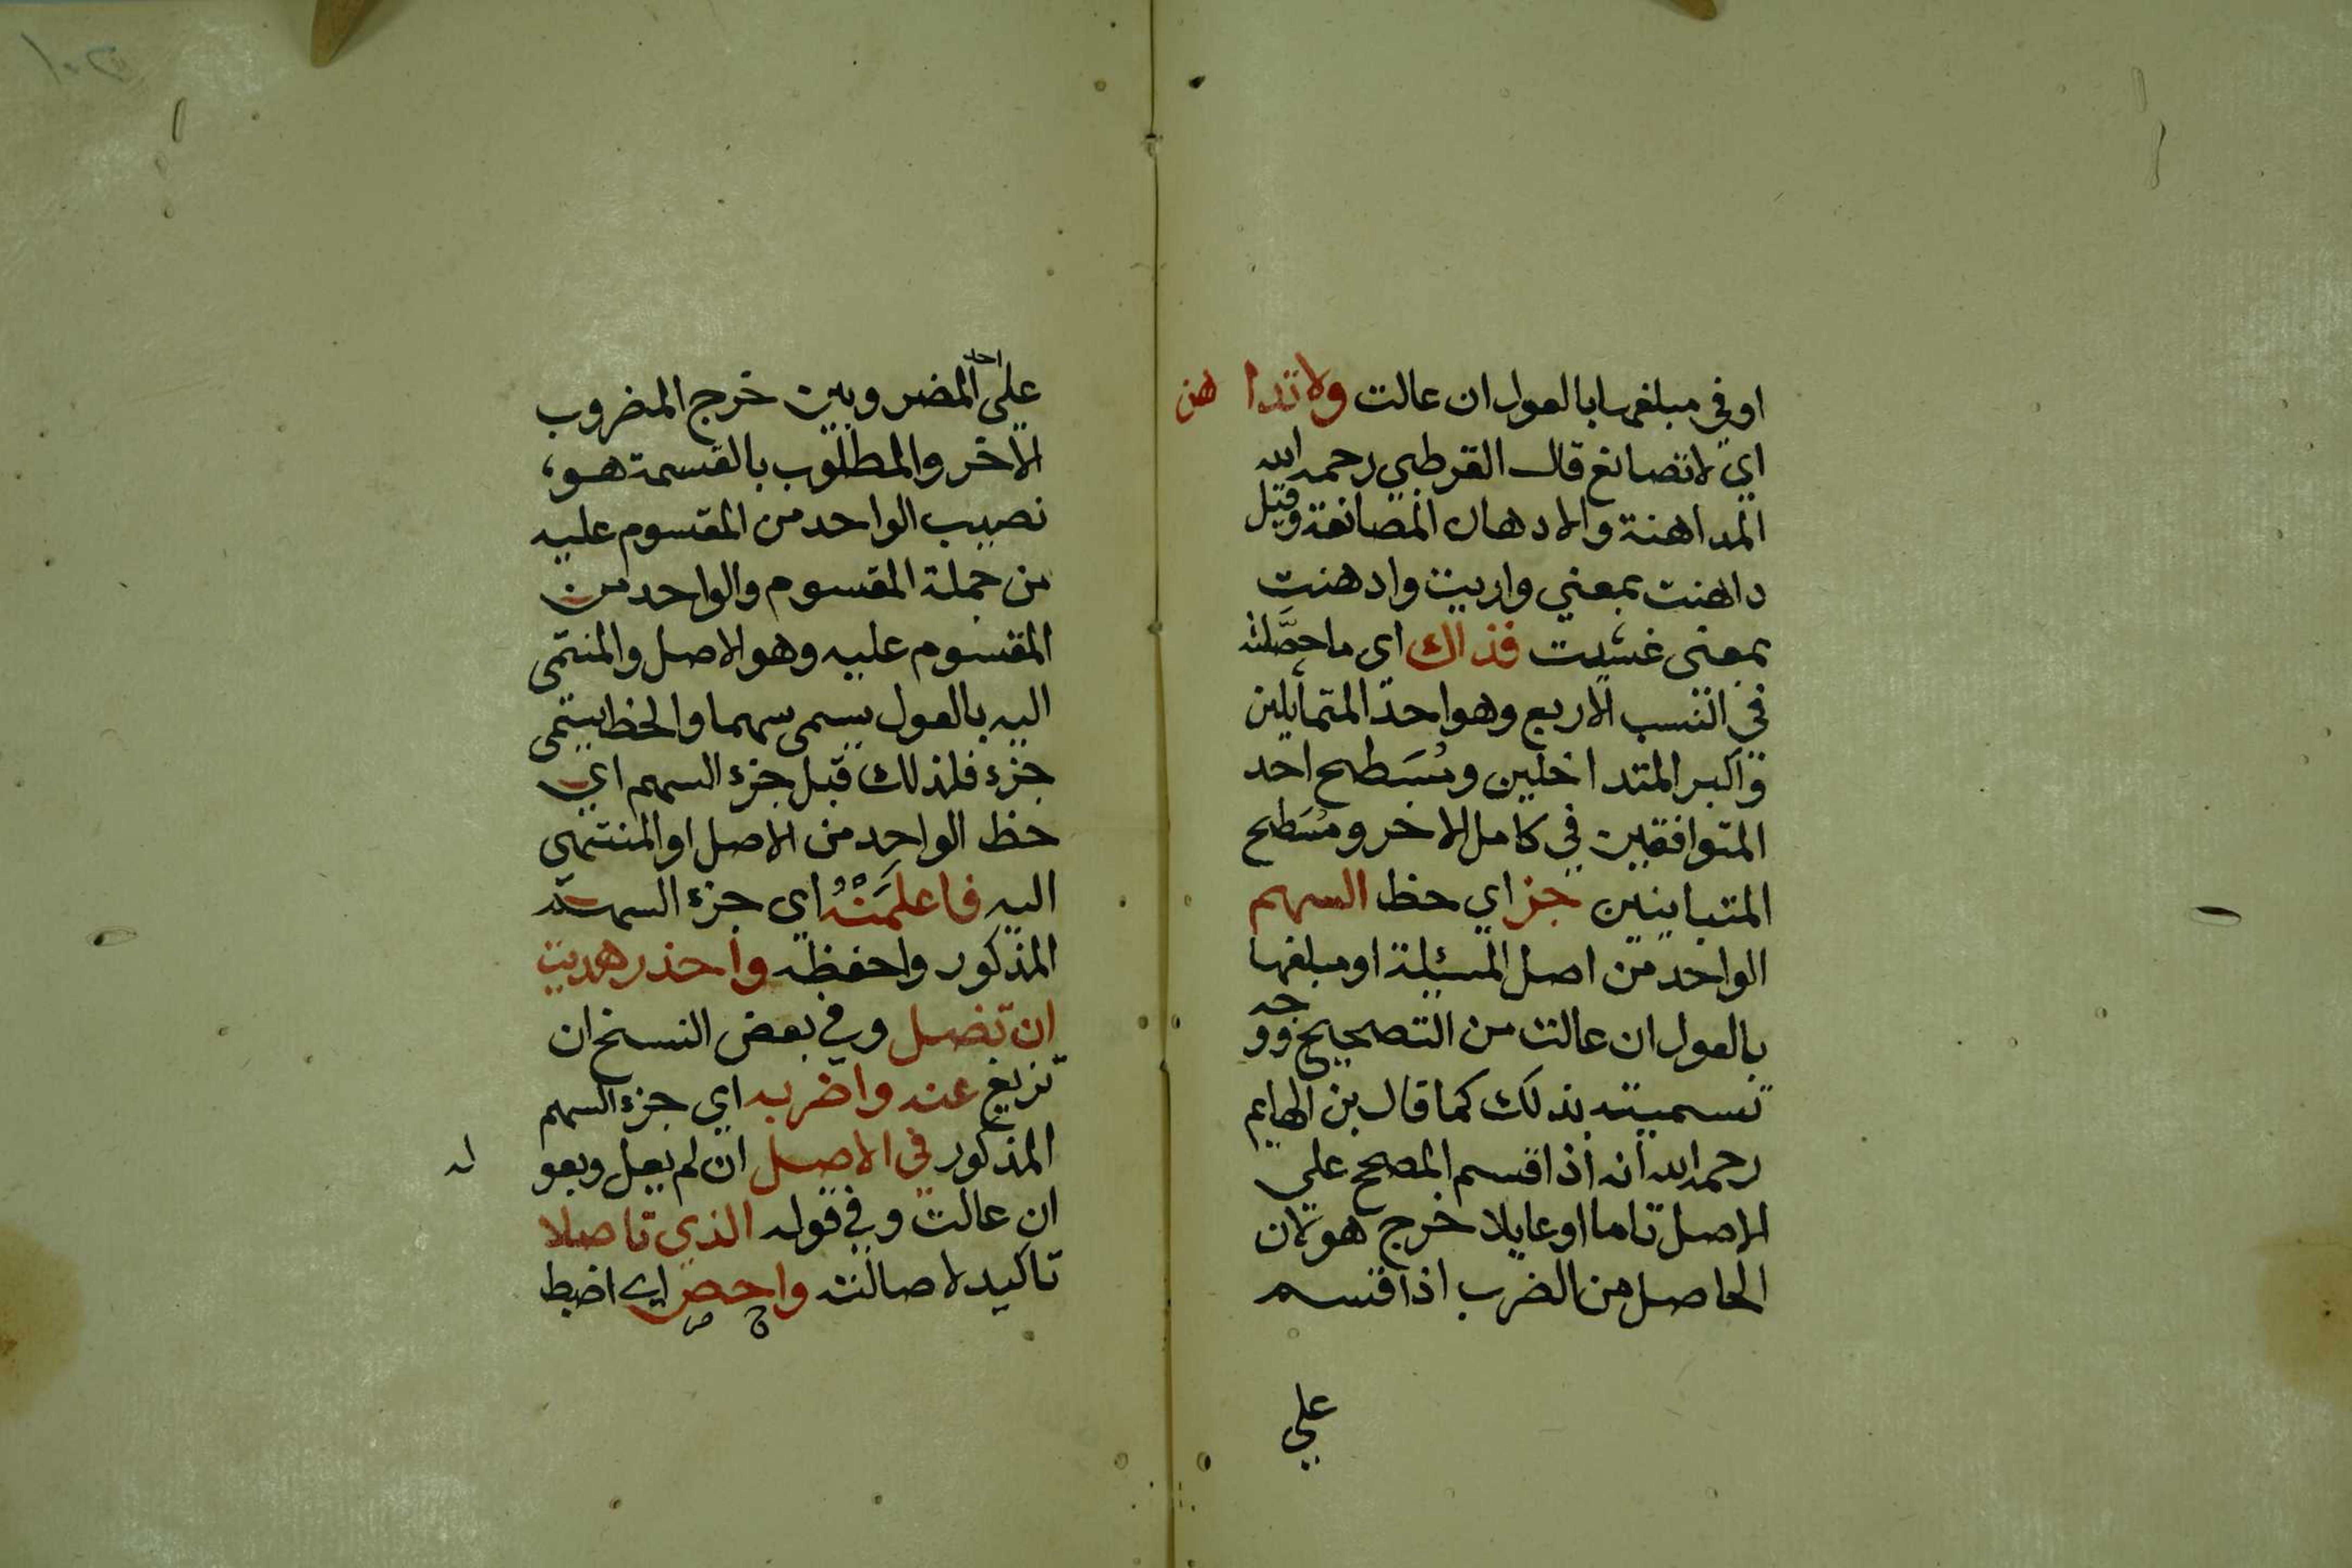 اوفي مبلغها بالعول ان عالت ولا تدا هن
اي لا تصانع قال القرطبي رحمه الله
المداهنة والادهان المصانعة وقيل
داهنت بمعني واريت وادهنت
بمعنى غشيت فذاك اي ما حصَّلته
في النسب الاربع وهو احد المتماثلين
واكبر المتداخلين ومُسَطح احد
المتوافقين في كامل الاخر ومُسَطح
المتباينين جز اي حظ السهم
الواحد من اصل المسئلة او مبلغها
بالعول ان عالت من التصحيح ووجه
تسميته بذلك كما قال بن الهايم
رحمه الله انه اذا قسم المصحح علي
الاصل تاما او عايلا خرج هو لان
الحاصل من الضرب اذا قسم
علي
علي احد المضروبين خرج المضروب
الاخر والمطلوب بالقسمة هو،
نصيب الواحد من المقسوم عليه
من جملة المقسوم والواحد من
المقسوم عليه وهو الاصل والمنتمى
اليه بالعول يسمى سهما والحظ يسمى
جزء فلذلك قيل جزء السهم اي
حظ الواحد من الاصل او المنتهي
اليه فاعلمَنْهُ اي جزء السهم
المذكور واحفظه واحذر هديت
ان تضل وفي بعض النسخ ان
تزيغ عنه واضربه اي جزء السهم
المذكور في الاصل ان لم يعل وبعو له
ان عالت وفي قوله الذي تاصلا
تاكيد لاصالته واحص اي اضبط